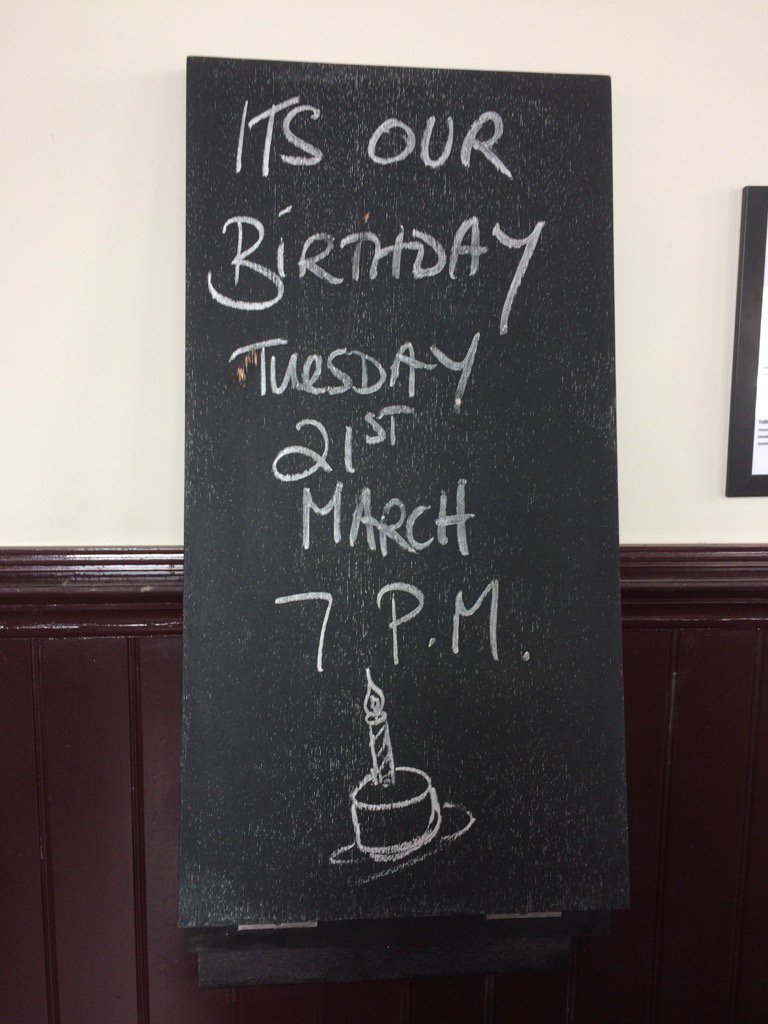 ITS OUR
BiRTHDAY
TUeSDAY
21ST
MARCH
7 P.M.